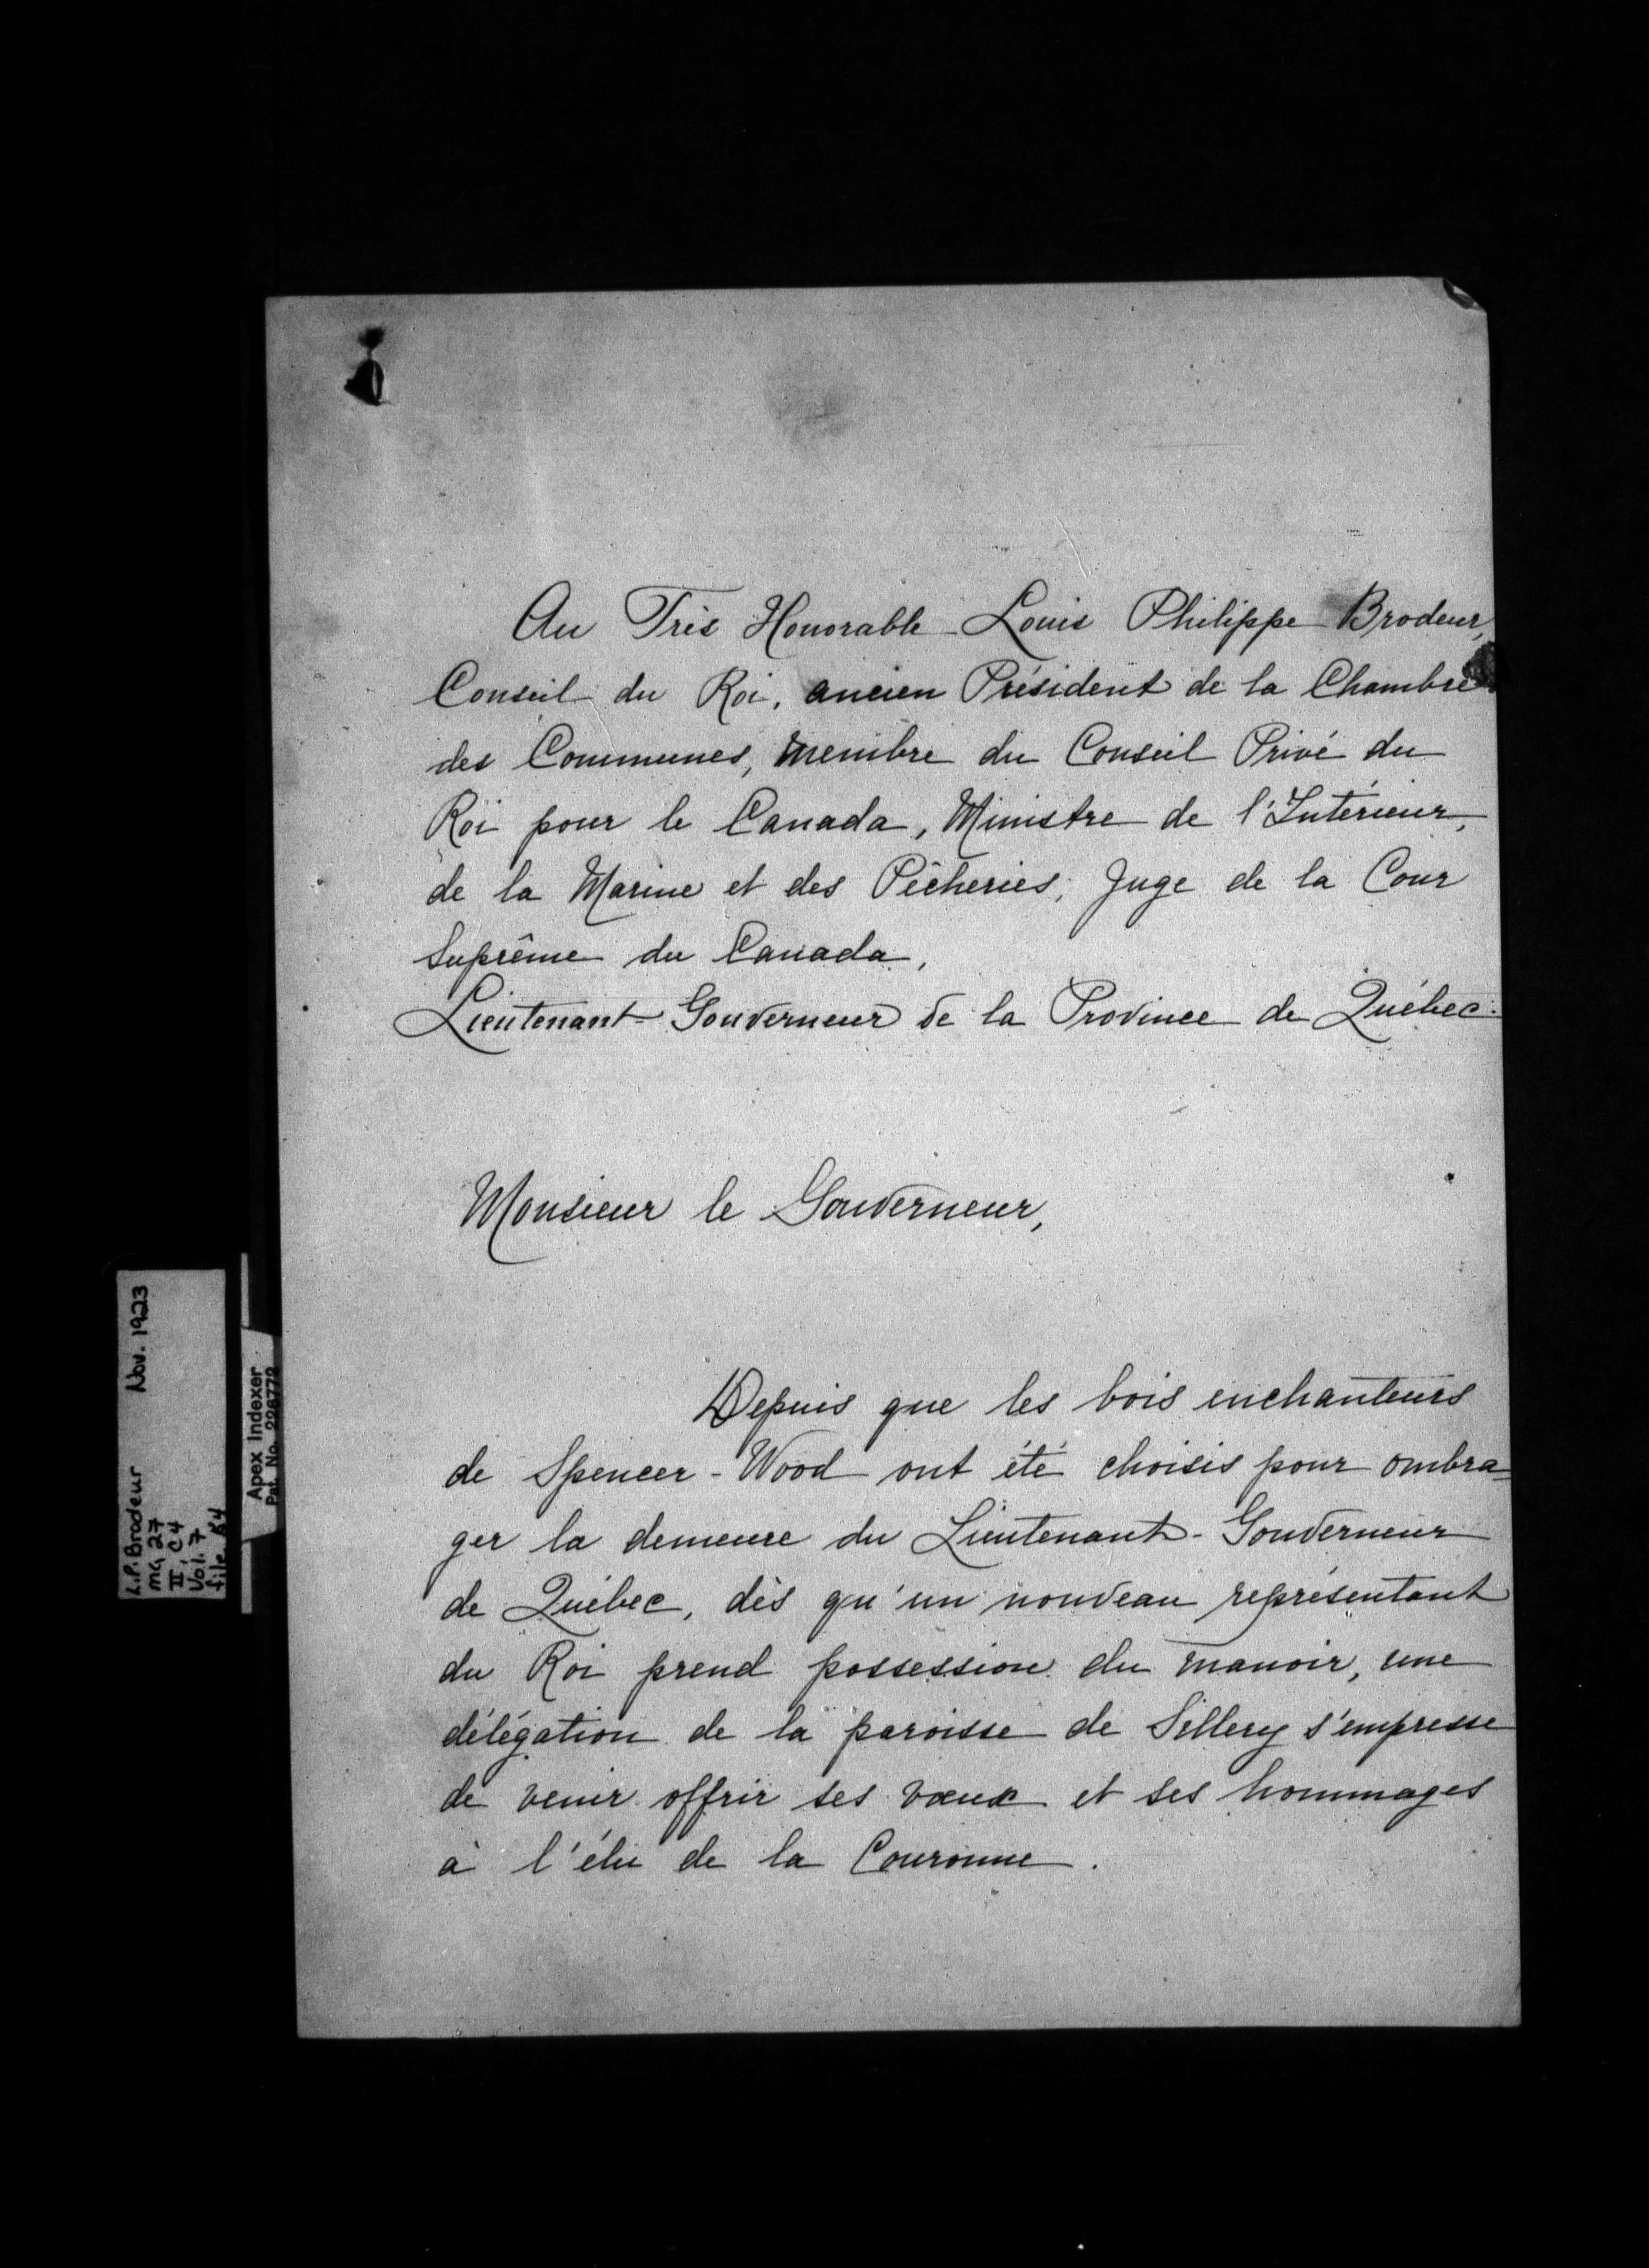 Au Très Honorable Louis Philippe Brodeur,
Conseil du Roi, ancien Président de la Chambre
des Communes, membre du Conseil Privé du
Roi pour le Canada, Ministre de l'Intérieur,
de la Marine et des Pêcheries, Juge de la Cour
Suprême du Canada,
Lieutenant-Gouverneur de la Province de Québec.
Monsieur le Gouverneur,
Depuis que les bois enchanteurs
de Spencer-Wood ont été choisis pour ombra-
ger la demeure du Lieutenant-Gouverneur
de Québec, dès qu'un nouveau représentant
du Roi prend possession du manoir, une
délégation de la paroisse de Sillery s'empresse
de venir offrir ses vœux et ses hommages
à l'élu de la Couronne.
L.P. Brodeur Nov. 1923
MG 27
II, C4
Vol. 7
file 84
Apex Indexer
Pat. No. 226772